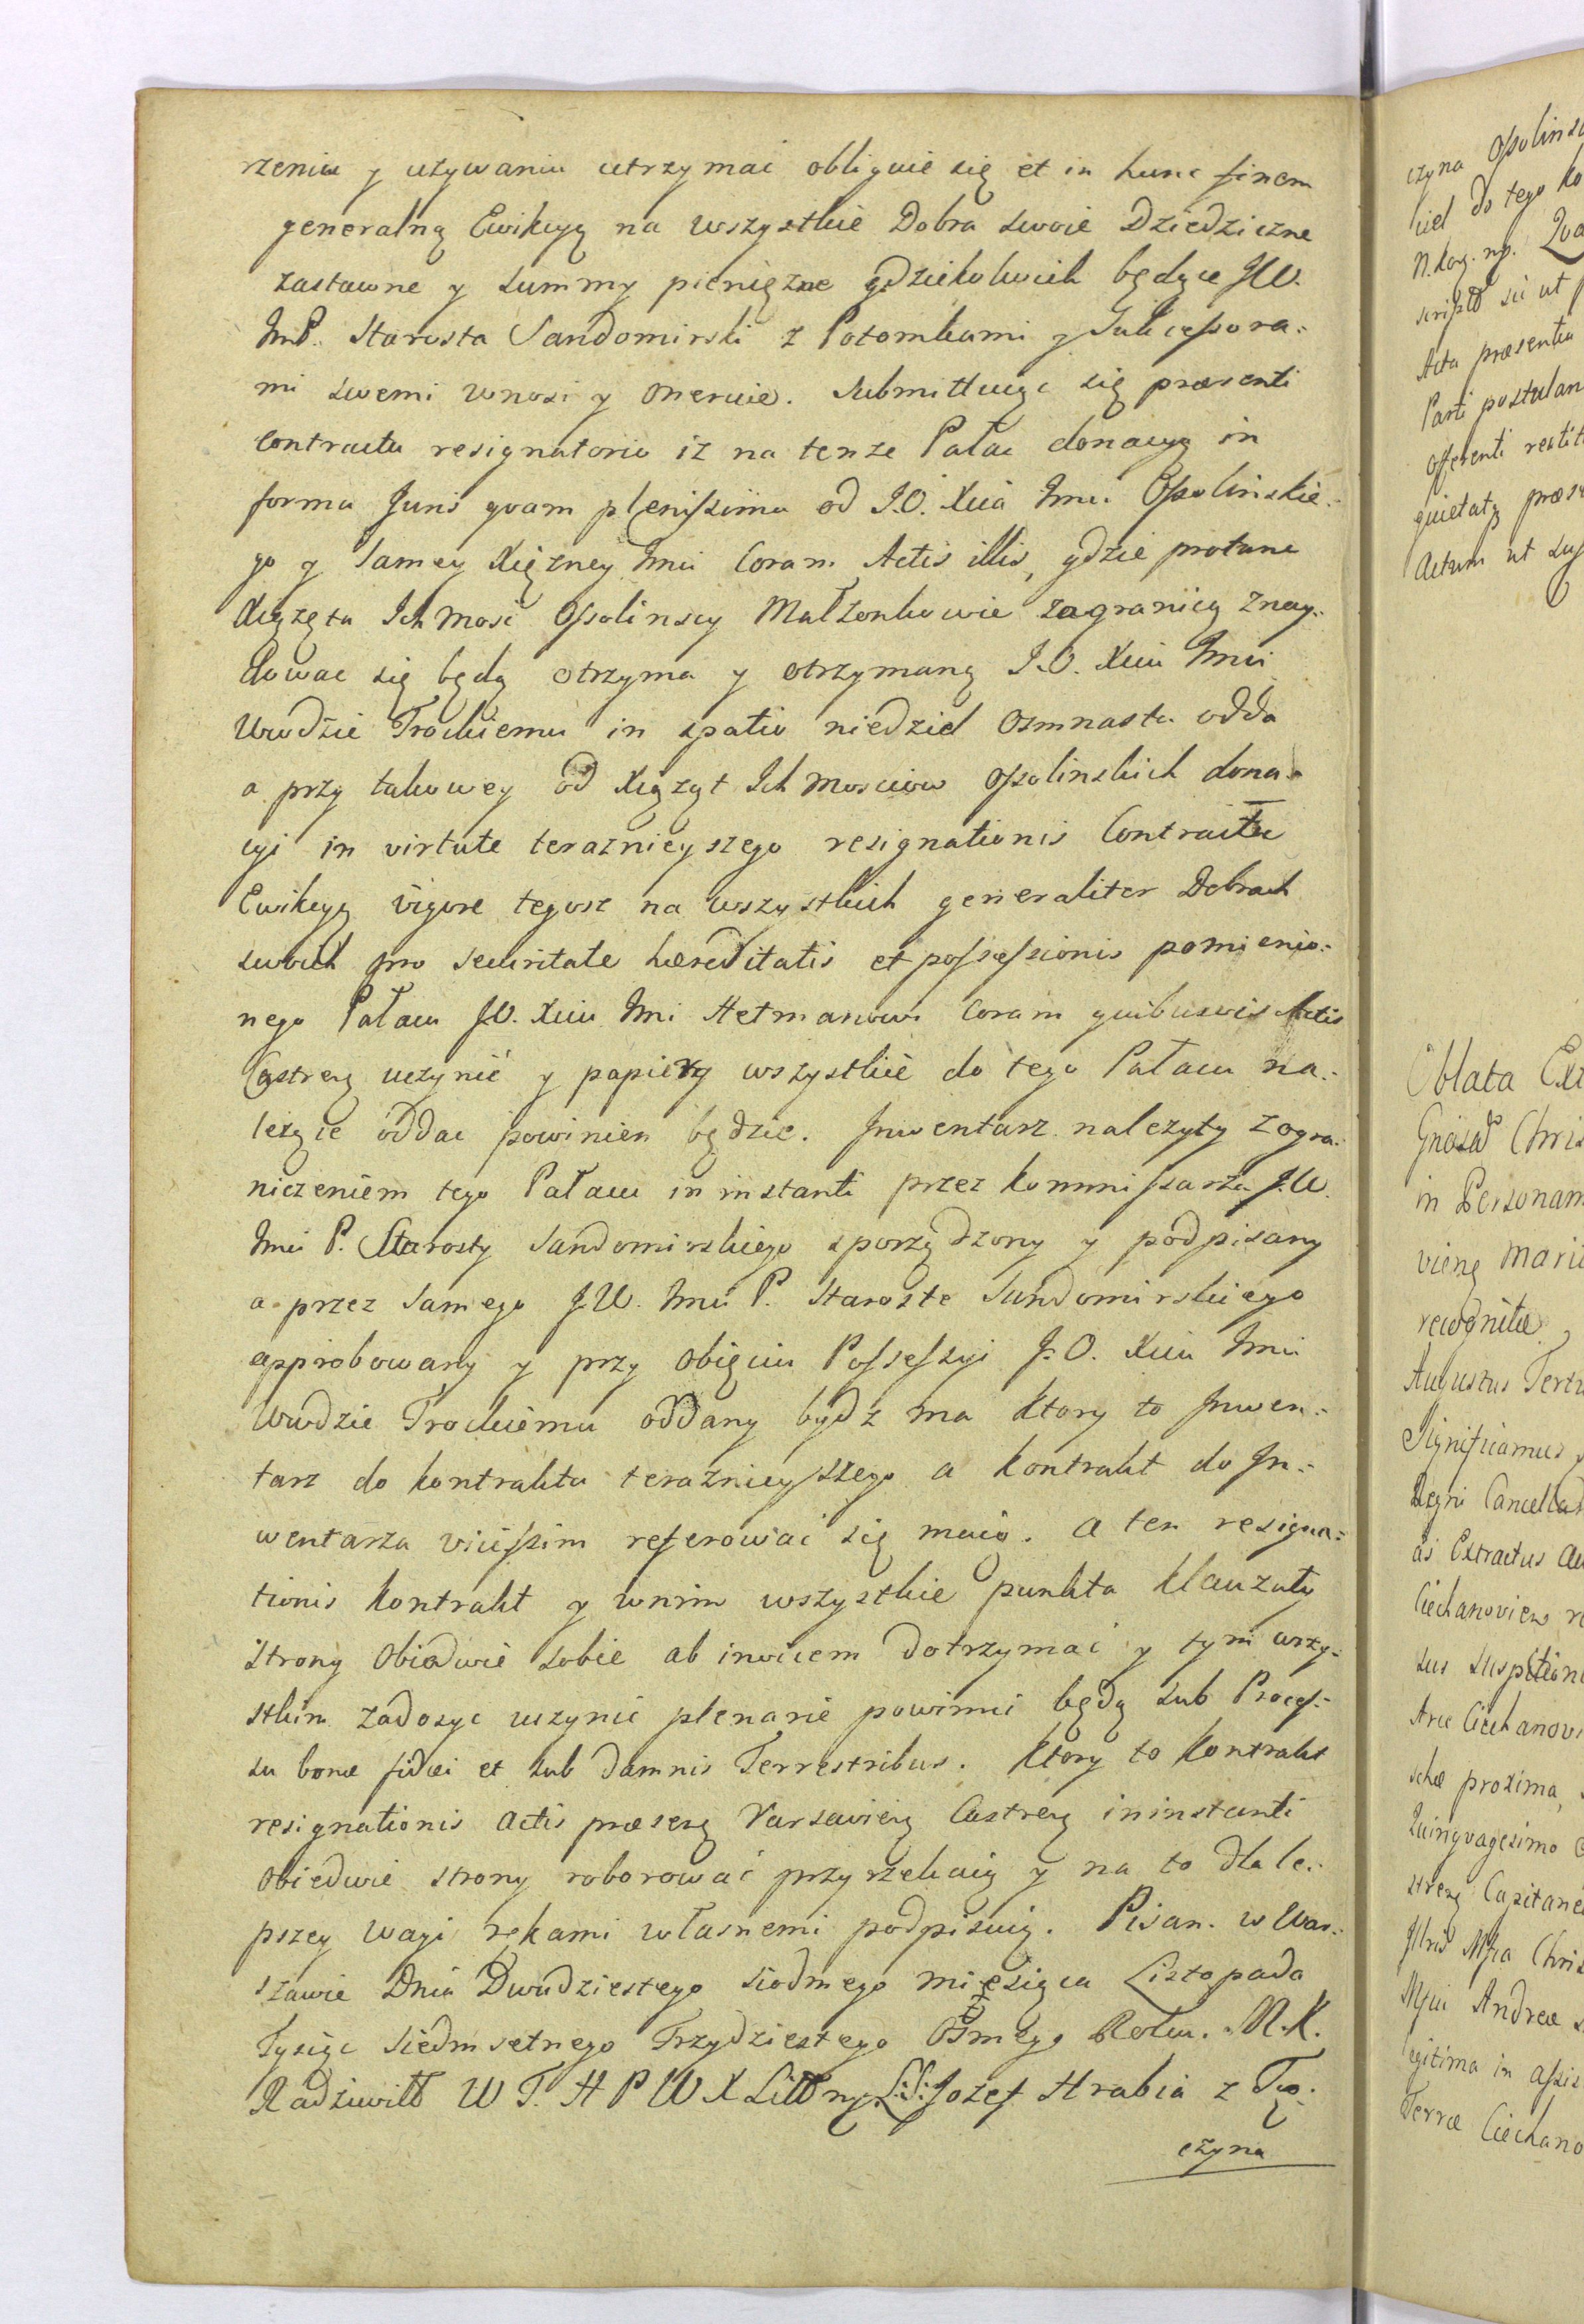 rzeniu y używaniu utrzymać obliguie się et in hunc finem
generalną Ewikcyą na wszystkie Dobra swoie Dziedziczne
zastawne y summy pieniężne gdziekolwiek będące JW.
ImP. Starosta Sandomirski z Potomkami y Sukcessora:
mi swemi wnosi y oneruie. Submittuiąc się præsenti
contractu resignatorio iż na tenże Pałac donacyą in
forma Juris quam plenissima od J.O. Xcia Imci Ossolinskie:
go y Samey Xiężney Imci Coram Actis illis, gdzie protunc
Xiążęta Ich Mość Ossolinscy Małżonkowie zagranicą znay:
dować się będą otrzyma y otrzymaną J.O. Xciu Imci
Wwodzie Trockiemu in spatio niedziel Osmnastu odda
a przy takowey od Xiążąt Ich Mościow Ossolinskich dona:
cyi in virtute teraznieyszego resignationis Contractu
Ewikcyą vigore tegosz na wszystkich generaliter Dobrach
swoich pro securitate hæreditatis et possessionis pomienio:
nego Pałacu J.O. Xciu Imci Hetmanowi Coram quibusvis Actis
Castreñ uczynić y papiery wszystkie do tego Pałacu na:
leżące oddać powinien będzie. Inwentarz należyty z ogra:
niczeniem tego Pałacu in instanti przez Kommissarza J.W.
Imci P. Starosty Sandomirskiego sporządzony y podpisany
a przez Samego J.W. Imci P. Staroste Sandomirskiego
approbowany y przy obięciu Possessyi J.O. Xciu Imci
Wwdzie Trockiemu oddany bydz ma ktory to Inwen:
tarz do kontraktu teraznieyszego a kontrakt do In:
wentarza vicissim referować się maią. a ten resigna:
tionis kontrakt y wnim wszystkie punkta klauzuły
strony obiedwie sobie ab invicem dotrzymać y tym wszy:
stkim zadosyc uczynić plenarie powinni będą sub Proces:
su bonæ fidei et sub damnis Terrestribus. Ktory to Kontrakt
resignationis Actis præseñ Varsavieñ Castreñ ininstanti
obiedwie strony roborować przyrzekaią y na to dla le:
pszey wagi rękami własnemi podpisuią. Pisan. w War:
szawie Dnia Dwudziestego siodmego miesiąca Listopada
Tysiąc siedmsetnego Trzydziestego Osmego Roku. M.K.
Radziwiłł W T. H P W X Littny L:S: Jozef Hrabia z Tę:
czyna

czyna Ossolinsk
ciel do tego ko
N.kor. mp.
sic ut
Acta præsentia
Parti postulan
offerenti restit
quietatq præs
Actum ut sup
Oblata Ext
Chris
in Personam
recognitæ
Augustus Terti
Significamus
Regni Cancella
Extractus
Ciechanovien
sus suspitione
Arce Ciechanovi
proxima,
Quinquagesimo
streñ Capitane
Chris
Andreæ
legitima in assis
Terræ Ciechano